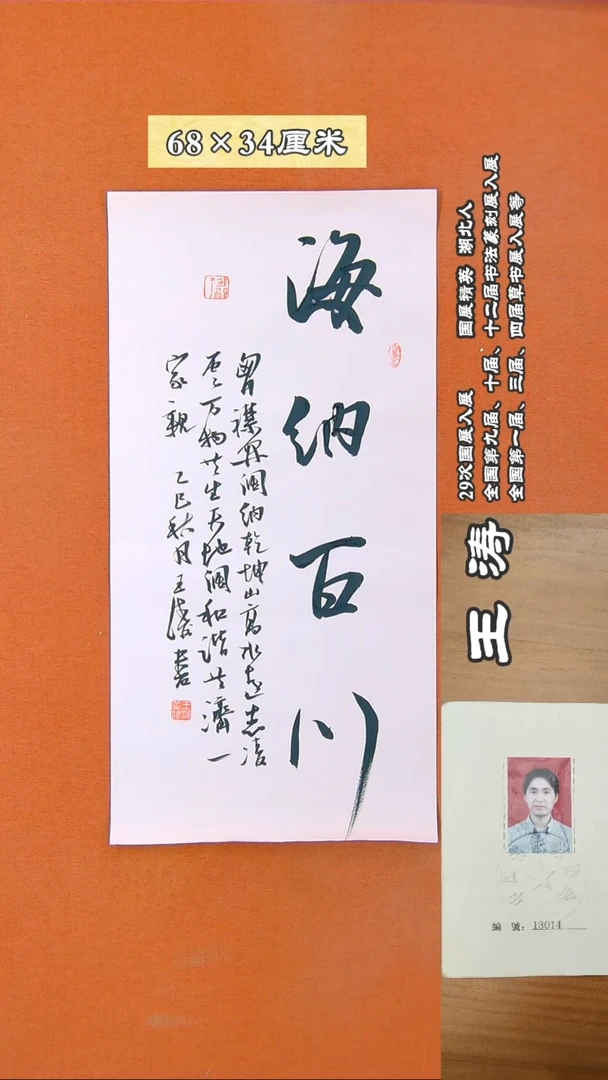 68×34厘米
海纳百川
襟阔纳乾坤山高水远志清
万物共生天地阔和谐共济一
家亲 乙巳秋月王涛书
29次国展入展 国展精英 湖北人
全国第九届、十届、十二届书法篆刻展入展
全国第一届、三届、四届草书展入展等
王涛
编 号: 13014